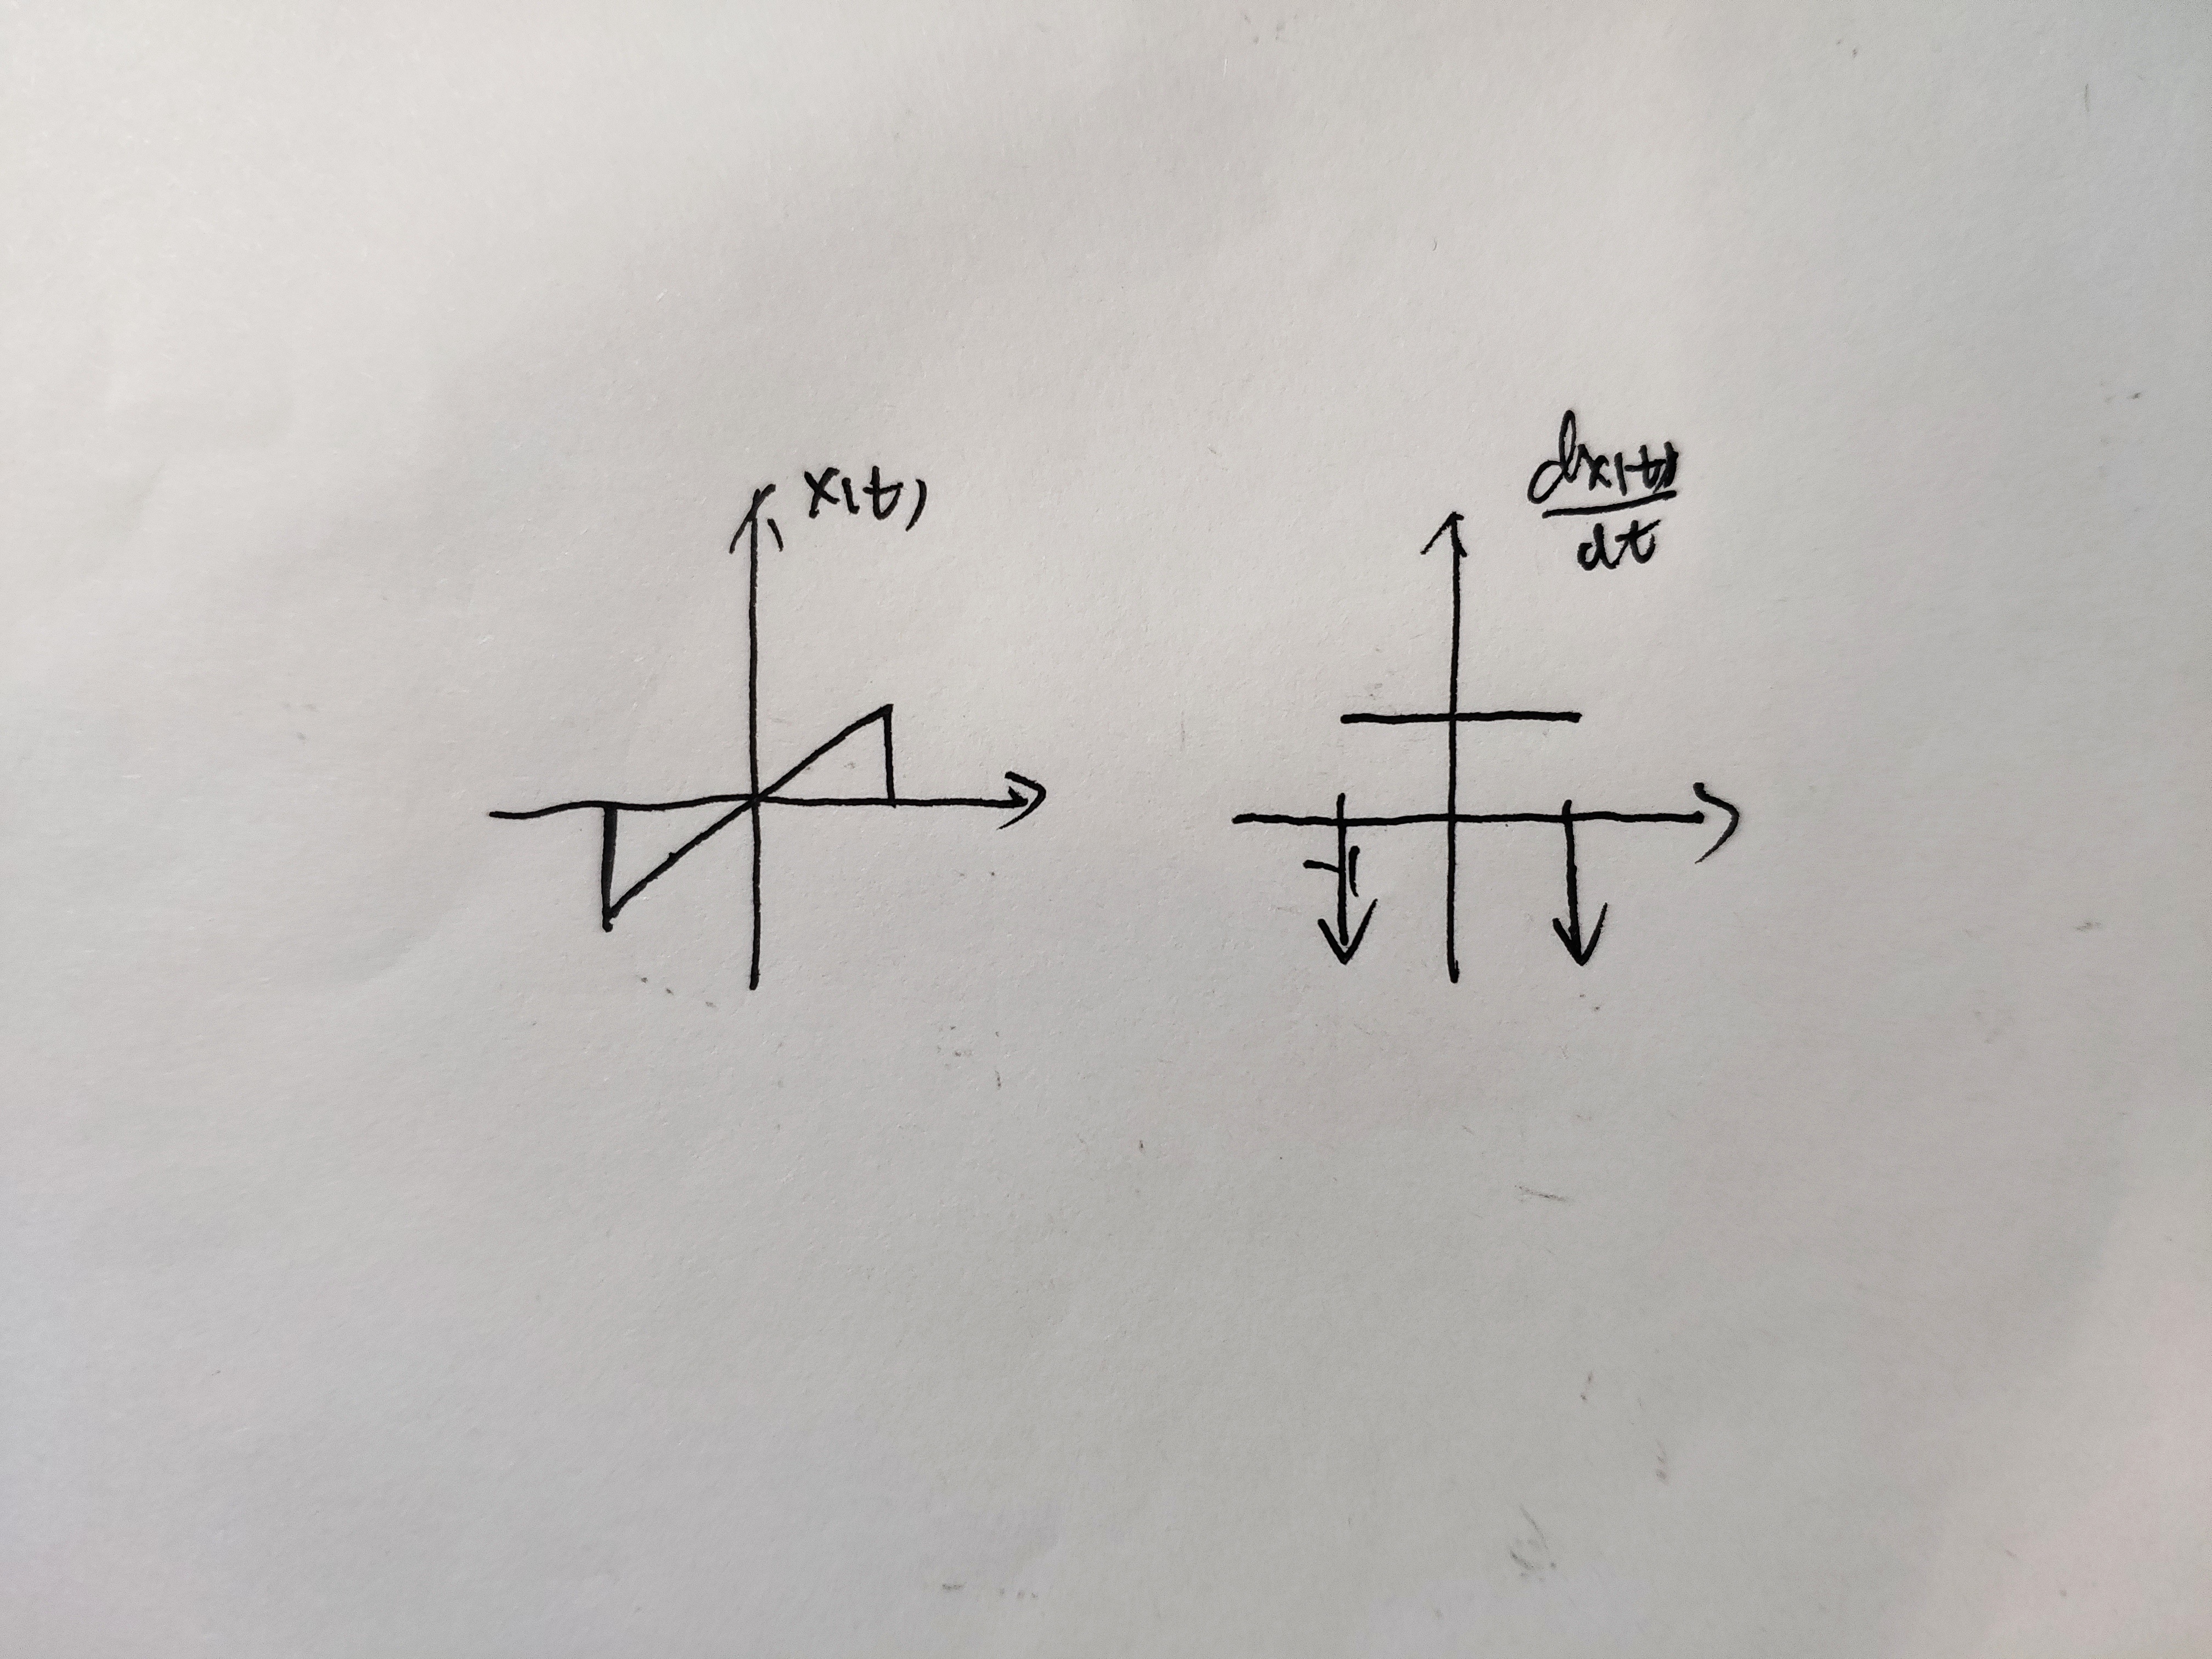 x(t)
dx(t)
dt
-1